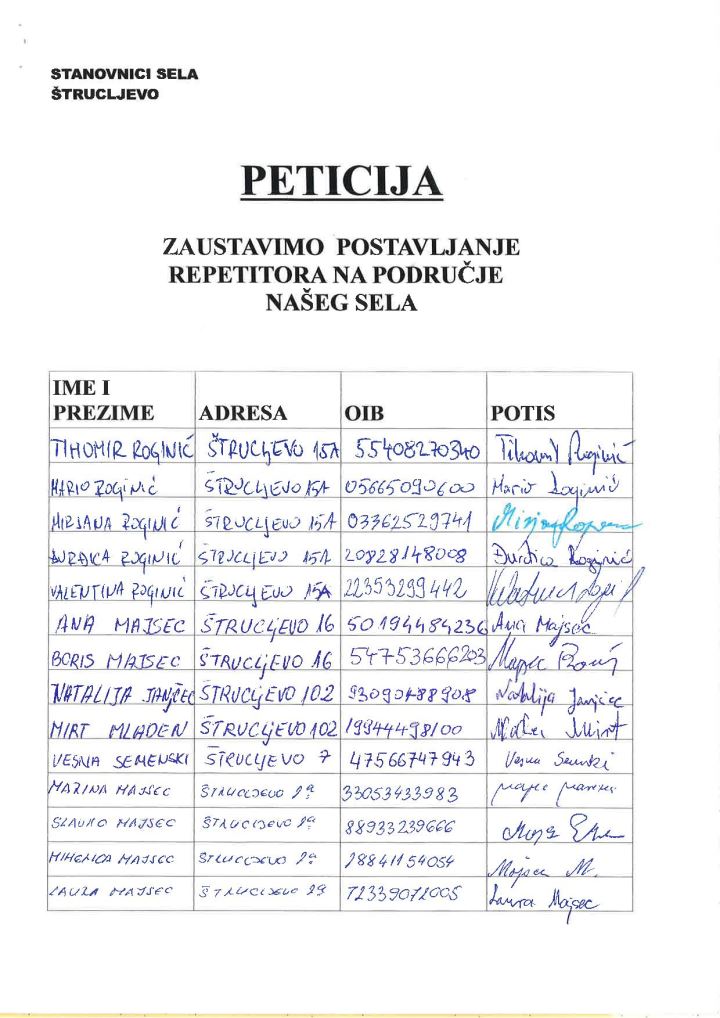 STANOVNICI SELA
ŠTRUCLJEVO
PETICIJA
ZAUSTAVIMO POSTAVLJANJE
REPETITORA NA PODRUČJE
NAŠEG SELA
IME I
PREZIME ADRESA OIB POTIS
TIHOMIR ROGINIĆ ŠTRUCLJEVO 15A 55408270340 Tihomir Roginić
MARIO ROGINIĆ ŠTRUCLJEVO 15A 05665090600 Mario Roginić
MIRJANA ROGINIĆ ŠTRUCLJEVO 15A 03362529741
ĐURĐICA ROGINIĆ ŠTRUCLJEVO 15A 20828148008 Đurđica Roginić
VALENTINA ROGINIĆ ŠTRUCLJEVO 15A 22353299442
ANA MAJSEC ŠTRUCLJEVO 16 50194484236 Ana Majsec
BORIS MAJSEC ŠTRUCLJEVO 16 54753666203 Majsec Boris
NATALIJA JANJČEC ŠTRUCLJEVO 102 93090488908 Natalija Janjčec
MIRT MLADEN ŠTRUCLJEVO 102 19944498100 Mirt
VESNA SEMENSKI ŠTRUCLJEVO 7 47566747943 Vesna Semenski
MARINA MAJSEC ŠTRUCLJEVO 33053433983
SLAVKO MAJSEC ŠTRUCLJEVO 88933239666
MIHAELA MAJSEC ŠTRUCLJEVO 28841154054 Majsec M.
LAURA MAJSEC ŠTRUCLJEVO 72339072005 Laura Majsec